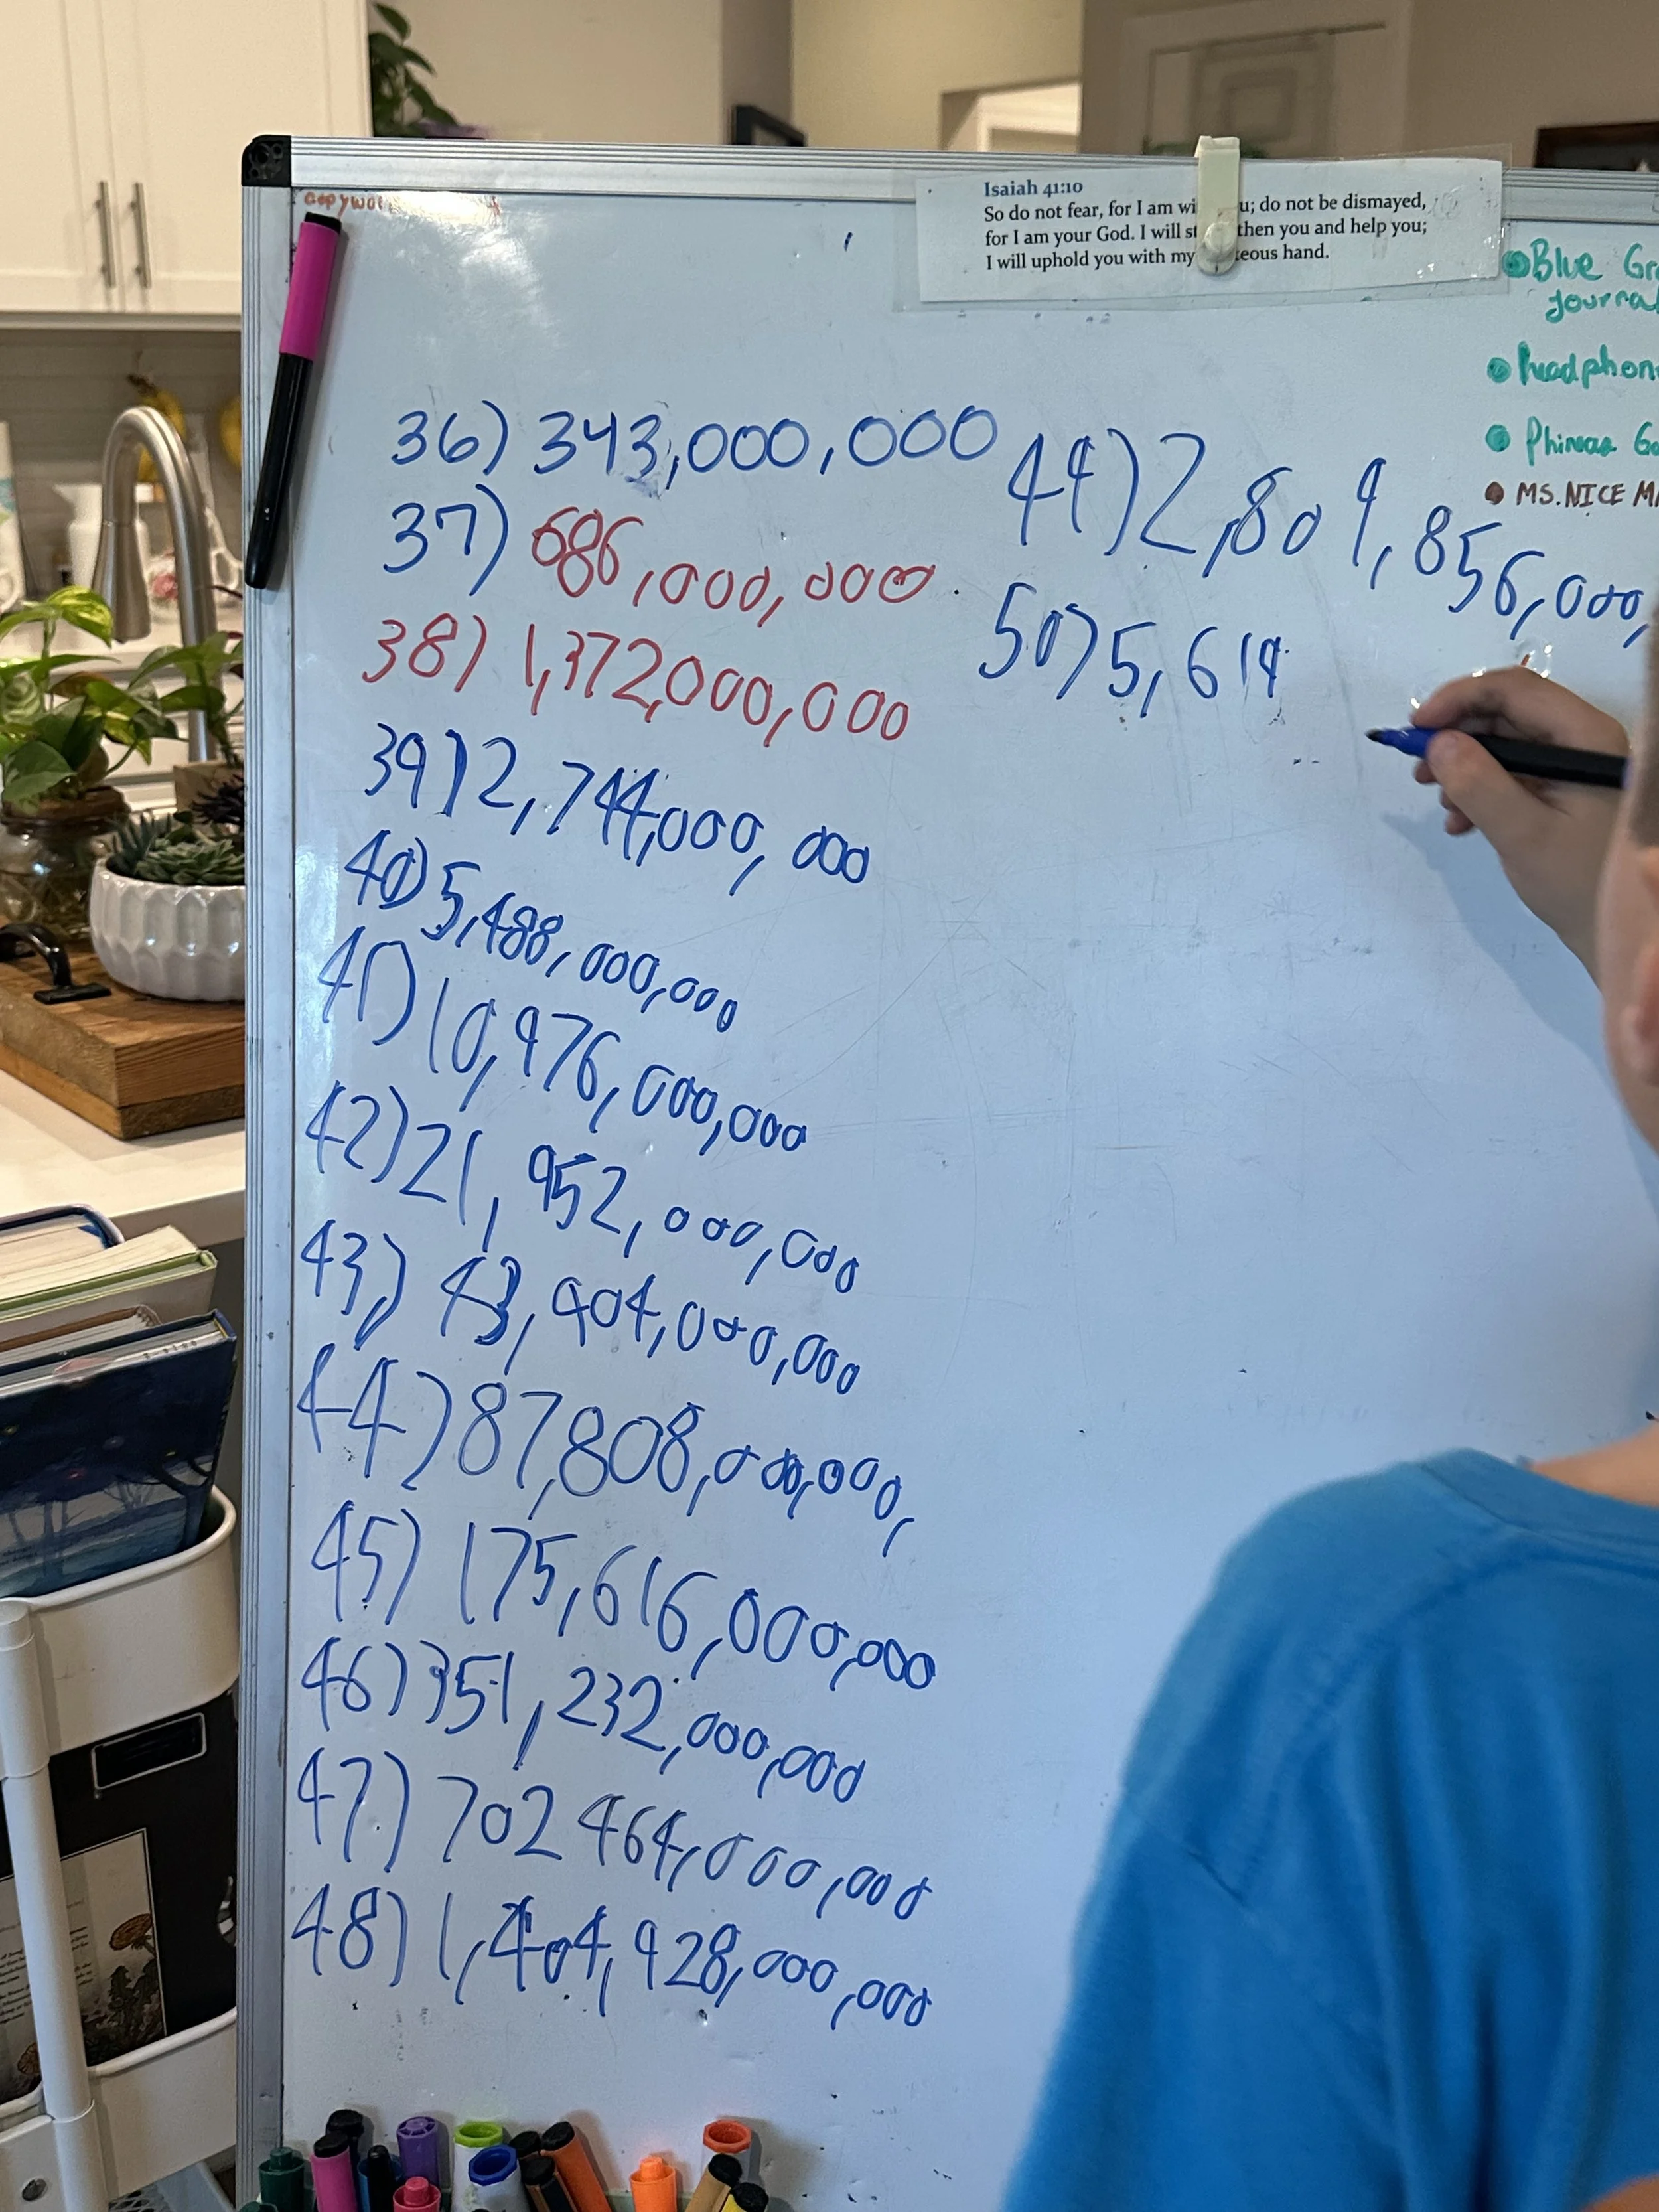 Isaiah 41:10
So do not fear, for I am wi u; do not be dismayed,
for I am your God. I will st then you and help you;
I will uphold you with my teous hand.
Blue Gr
journal
headphon
Phineas G
MS.NICE MA
36) 343,000,000
37) 686,000,000
38) 1,372,000,000
39) 2,744,000,000
40) 5,488,000,000
41) 10,976,000,000
42) 21,952,000,000
43,) 43,904,000,000
44) 87,808,000,000,
45) 175,616,000,000
46) 351,232,000,000
47) 702 464,000,000
48) 1,404,928,000,000
44) 2,809,856,000,
50) 5,619